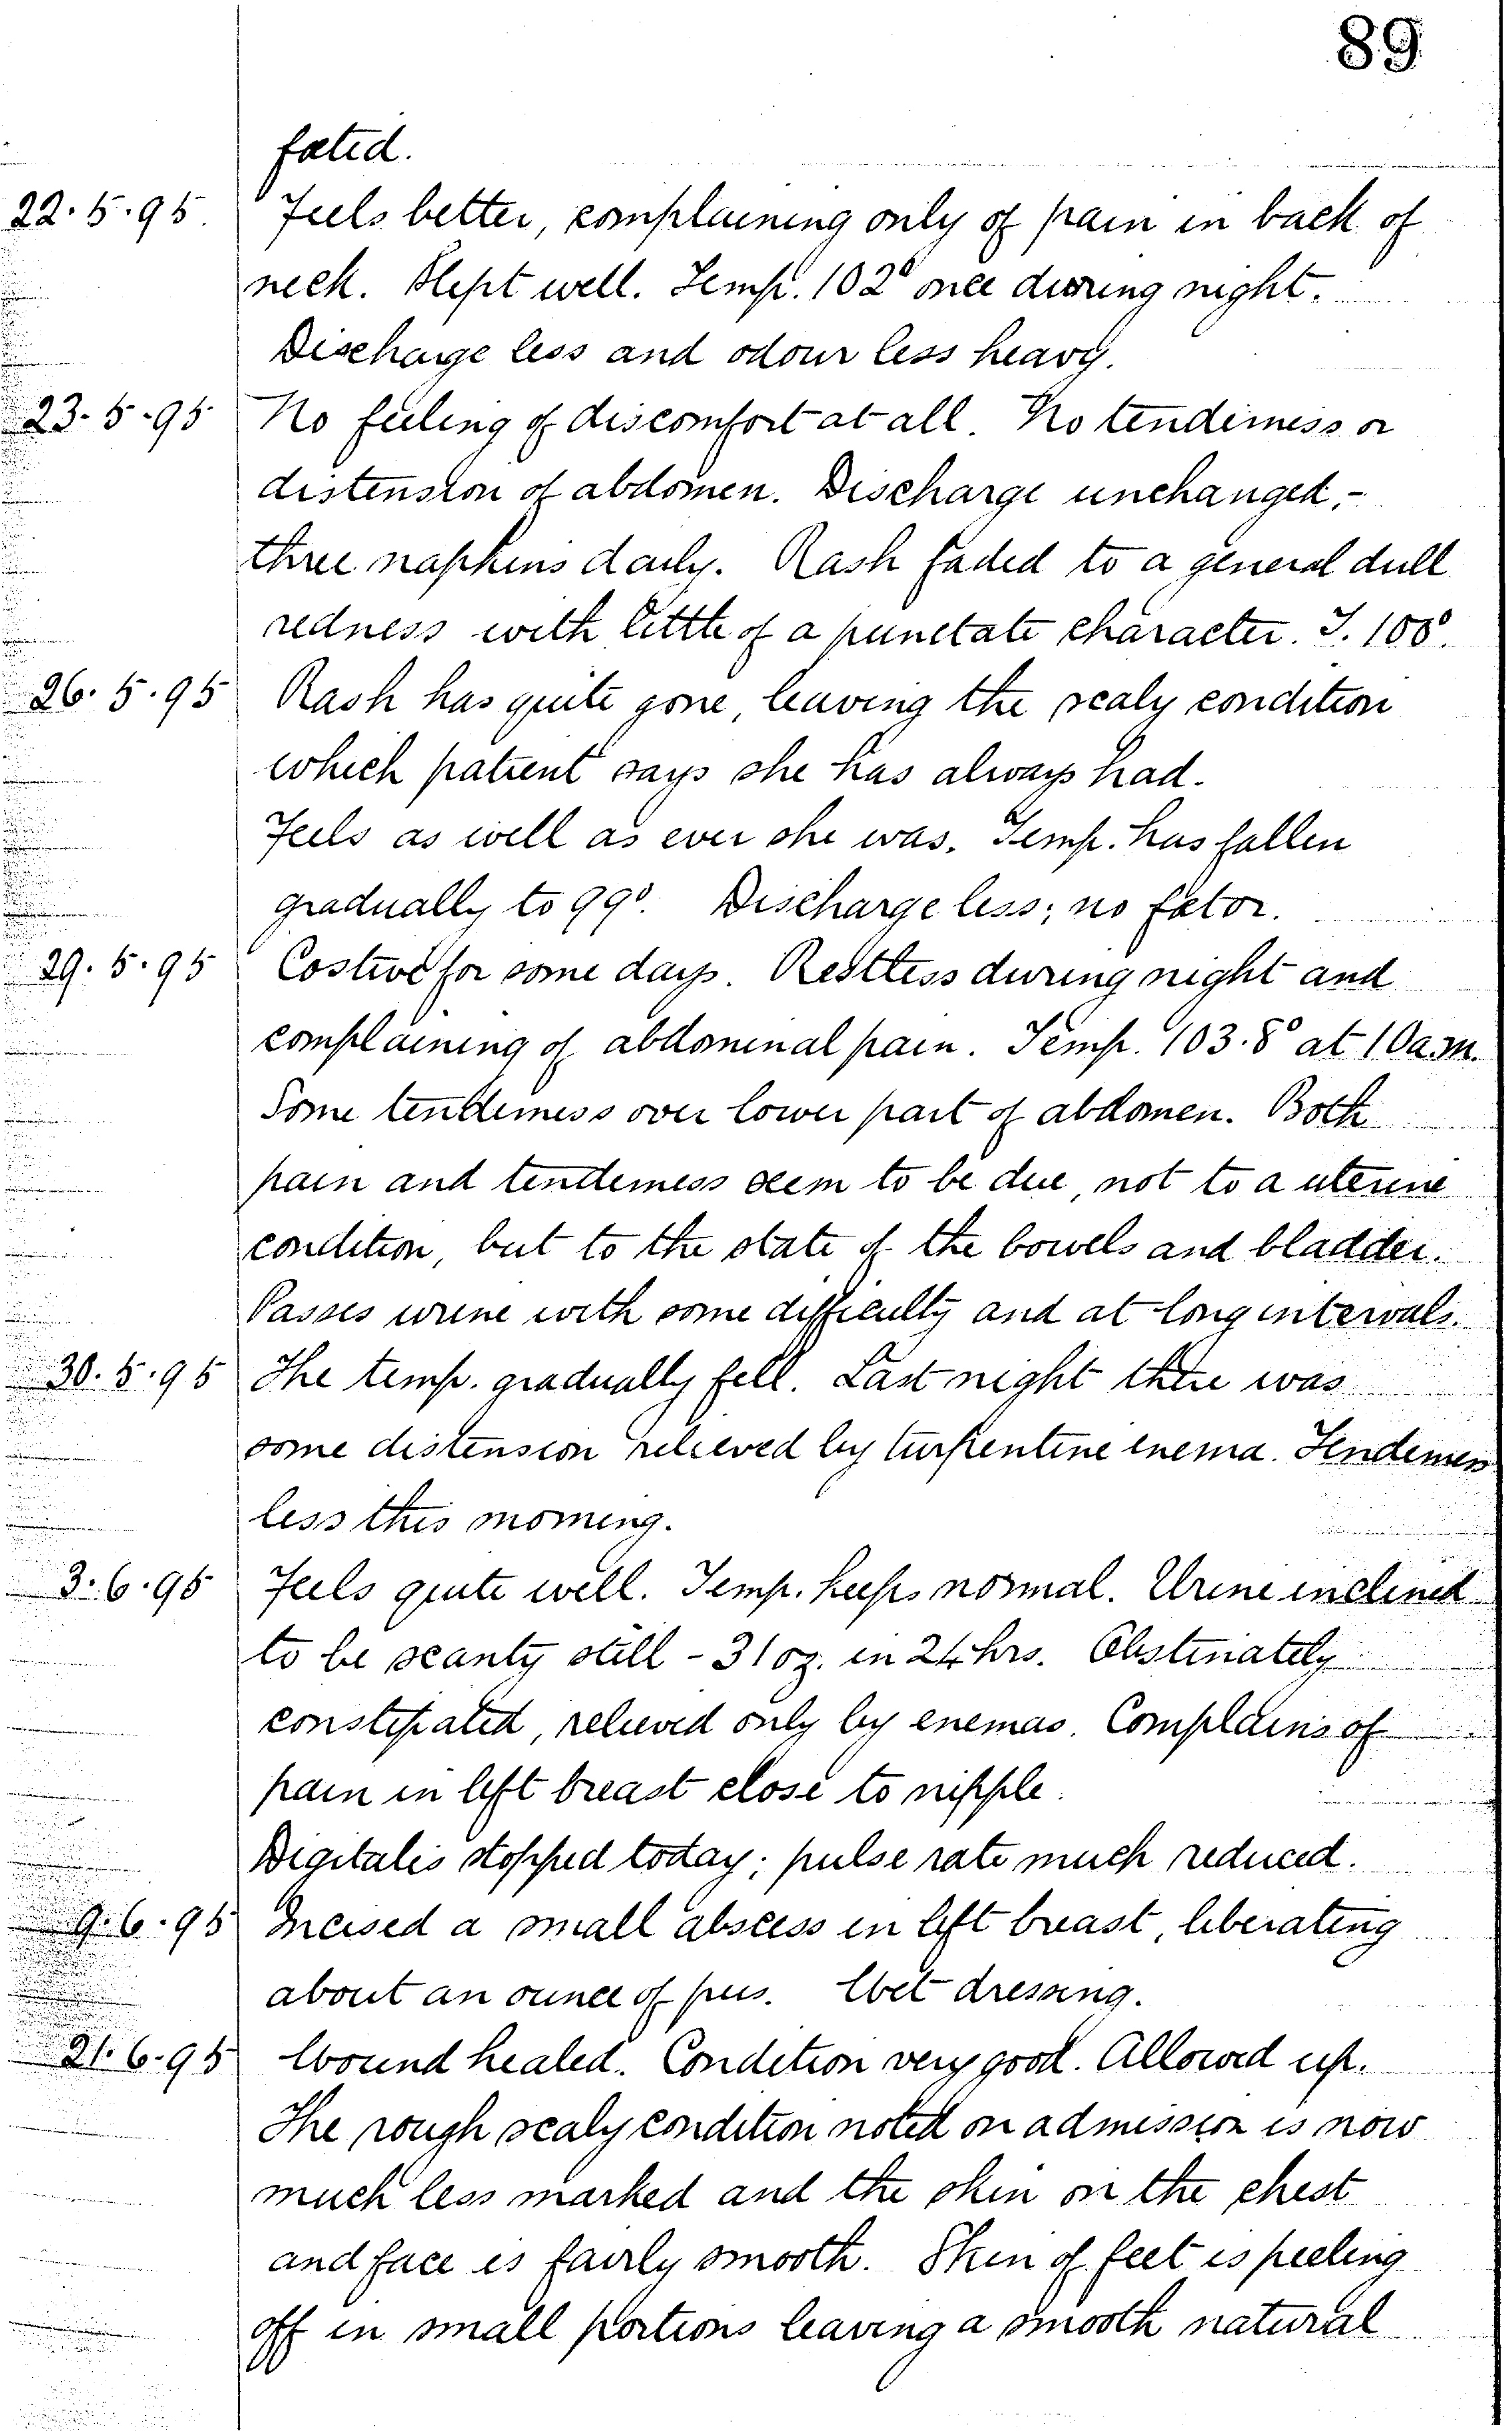 89
fœtid.
22.5.95. Feels better, complaining only of pain in back of
neck. Slept well. Temp. 102° once during night.
Discharge less and odour less heavy.
23.5.95 No feeling of discomfort at all. No tenderness or
distension of abdomen. Discharge unchanged, -
three napkins daily. Rash faded to a general dull
redness with little of a punctate character. T. 100°.
26.5.95 Rash has quite gone, leaving the scaly condition
which patient says she has always had.
Feels as well as ever she was. Temp. has fallen
gradually to 99°. Discharge less; no fœtor.
29.5.95 Costive for some days. Restless during night and
complaining of abdominal pain. Temp. 103.8° at 10 a.m.
Some tenderness over lower part of abdomen. Both
pain and tenderness seem to be due, not to a uterine
condition, but to the state of the bowels and bladder.
Passes urine with some difficulty and at long intervals.
30.5.95 The temp. gradually fell. Last night there was
some distension relieved by turpentine enema. Tenderness
less this morning.
3.6.95 Feels quite well. Temp. keeps normal. Urine inclined
to be scanty still - 31 oz. in 24 hrs. Obstinately
constipated, relieved only by enemas. Complains of
pain in left breast close to nipple.
Digitalis stopped today; pulse rate much reduced.
9.6.95 Incised a small abscess in left breast, liberating
about an ounce of pus. Wet dressing.
21.6.95 Wound healed. Condition very good. Allowed up.
The rough scaly condition noted on admission is now
much less marked and the skin on the chest
and face is fairly smooth. Skin of feet is peeling
off in small portions leaving a smooth natural